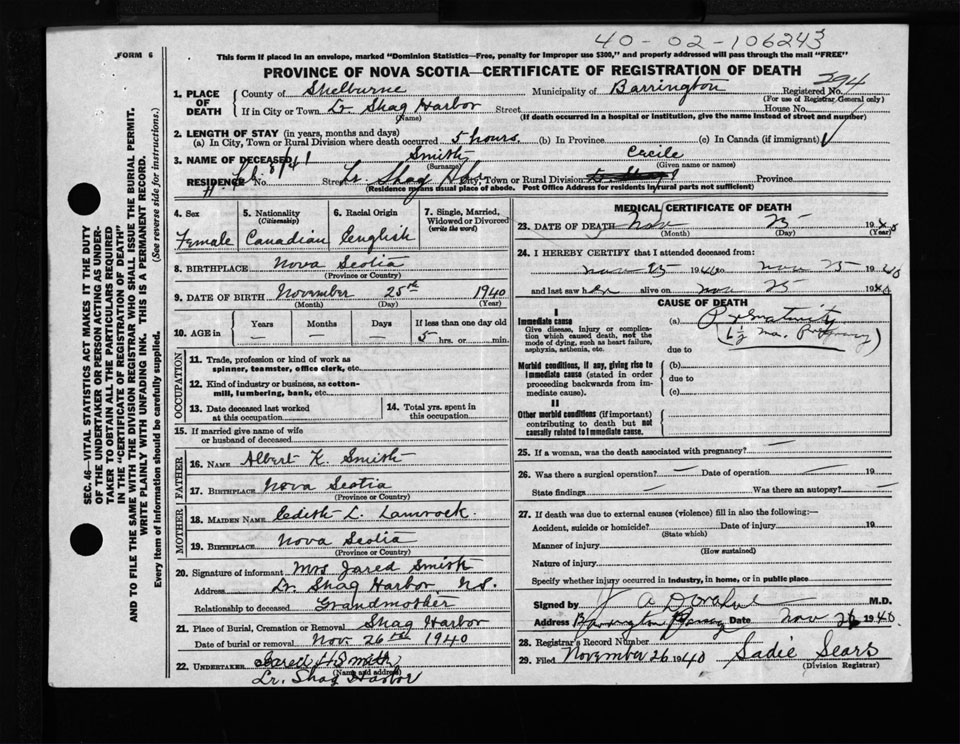 40-02-106243
FORM 6
This form if placed in an envelope, marked "Dominion Statistics—Free, penalty for improper use $300," and properly addressed will pass through the mail "FREE"
PROVINCE OF NOVA SCOTIA—CERTIFICATE OF REGISTRATION OF DEATH
294
1. PLACE OF DEATH
County of Shelburne Municipality of Barrington Registered No.
(For use of Registrar General only)
If in City or Town Lr. Shag Harbor Street House No.
(Name) (If death occurred in a hospital or institution, give the name instead of street and number)
2. LENGTH OF STAY (in years, months and days)
(a) In City, Town or Rural Division where death occurred 5 hours (b) In Province (c) In Canada (if immigrant)
3. NAME OF DECEASED Smith Cecile
(Surname) (Given name or names)
RESIDENCE No. Street Lr. Shag Hbr. City, Town or Rural Division Province
(Residence means usual place of abode. Post Office Address for residents in rural parts not sufficient)
4. Sex
Female
5. Nationality
(Citizenship)
Canadian
6. Racial Origin
English
7. Single, Married, Widowed or Divorced
(write the word)
8. BIRTHPLACE Nova Scotia
(Province or Country)
9. DATE OF BIRTH November 25th 1940
(Month) (Day) (Year)
10. AGE in
Years Months Days If less than one day old
— — — 5 hrs. or min.
OCCUPATION
11. Trade, profession or kind of work as
spinner, teamster, office clerk, etc.
12. Kind of industry or business, as cotton-
mill, lumbering, bank, etc.
13. Date deceased last worked
at this occupation
14. Total yrs. spent in
this occupation
15. If married give name of wife
or husband of deceased
FATHER
16. Name Albert K. Smith
17. Birthplace Nova Scotia
(Province or Country)
MOTHER
18. Maiden Name Edith L. Lamrock
19. Birthplace Nova Scotia
(Province or Country)
20. Signature of informant Mrs Jared Smith
Address Lr. Shag Harbor N.S.
Relationship to deceased Grandmother
21. Place of Burial, Cremation or Removal Shag Harbor
Date of burial or removal Nov. 26th 1940
22. UNDERTAKER Jared H Smith
(Name and address)
Lr. Shag Harbor
MEDICAL CERTIFICATE OF DEATH
23. DATE OF DEATH Nov 25 1940
(Month) (Day) (Year)
24. I HEREBY CERTIFY that I attended deceased from:
Nov 25 1940 to Nov 25 1940
and last saw her alive on Nov 25 1940
CAUSE OF DEATH
I
Immediate cause
Give disease, injury or complica-
tion which caused death, not the
mode of dying, such as heart failure,
asphyxia, asthenia, etc.
(a) Prematurity
due to
Morbid conditions, if any, giving rise to
immediate cause (stated in order
proceeding backwards from im-
mediate cause).
(b)
due to
(c)
II
Other morbid conditions (if important)
contributing to death but not
causally related to immediate cause.
25. If a woman, was the death associated with pregnancy? —
26. Was there a surgical operation? — Date of operation — 19
State findings — Was there an autopsy? —
27. If death was due to external causes (violence) fill in also the following:—
Accident, suicide or homicide? Date of injury 19
(State which)
Manner of injury
(How sustained)
Nature of injury
Specify whether injury occurred in industry, in home, or in public place
Signed by J A Donahue M.D.
Address Barrington Passage Date Nov 26 1940
28. Registrar's Record Number
29. Filed November 26 1940 Sadie Sears
(Division Registrar)
SEC. 46—VITAL STATISTICS ACT MAKES IT THE DUTY
OF THE UNDERTAKER OR PERSON ACTING AS UNDER-
TAKER TO OBTAIN ALL THE PARTICULARS REQUIRED
IN THE "CERTIFICATE OF REGISTRATION OF DEATH"
AND TO FILE THE SAME WITH THE DIVISION REGISTRAR WHO SHALL ISSUE THE BURIAL PERMIT.
WRITE PLAINLY WITH UNFADING INK. THIS IS A PERMANENT RECORD.
Every item of information should be carefully supplied. (See reverse side for instructions.)